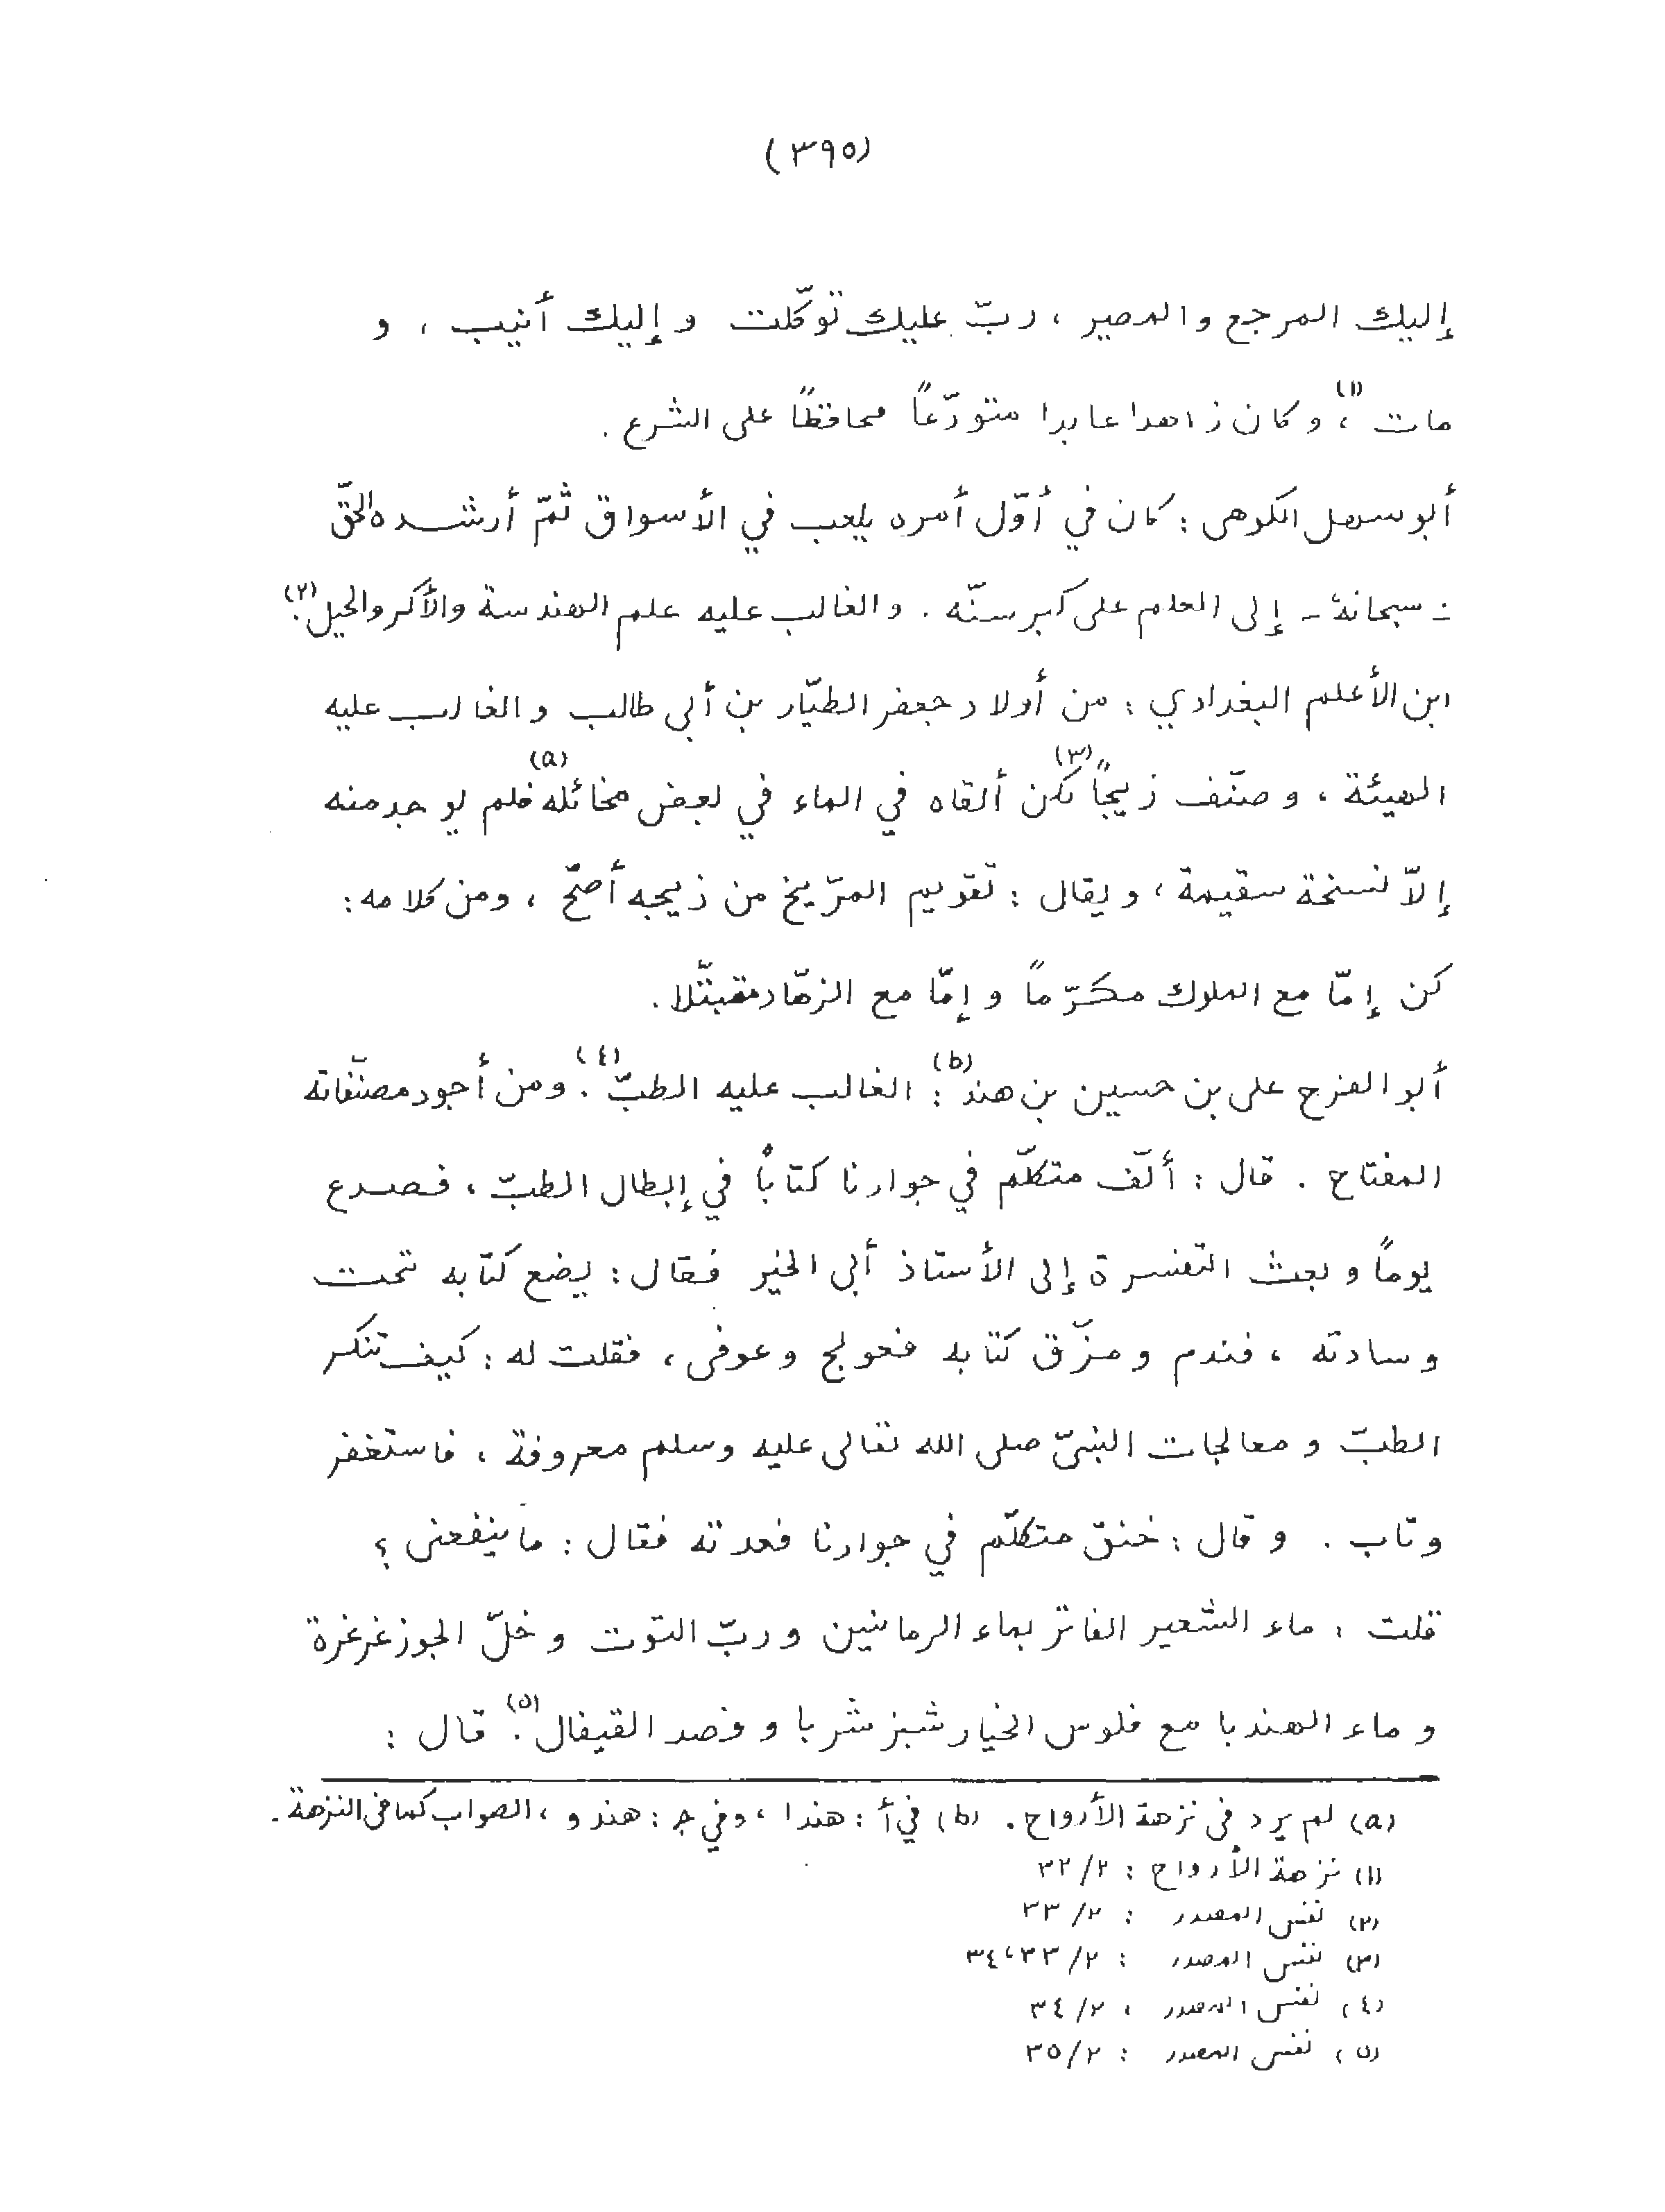 (٣٩٥)
إليك المرجع والمصير ، ربّ عليك توكّلت وإليك أنيب ، و
مات (١)، وكان زاهدا عابدا متورّعاً محافظاً على الشرع .
أبو سهل الكوهى : كان في أوّل أمره يلعب في الأسواق ثمّ أرشده الحقّ
- سبحانه - إلى العلم على كبر سنّه . والغالب عليه علم الهندسة والأكر والحيل (٢).
ابن الأعلم البغدادي : من أولاد جعفر الطيّار بن أبي طالب والغالب عليه
الهيئة ، وصنّف زيجاً (٣) لكن ألقاه في الماء في بعض مخائله (a) فلم يوجد منه
إلاّ نسخة سقيمة ، ويقال : تقويم المرّيخ من زيجه أصحّ ، ومن كلامه :
كن إمّا مع الملوك مكرّماً وإمّا مع الزهّاد متبتّلا .
أبو الفرج على بن حسين بن هند (b) : الغالب عليه الطبّ (٤) . ومن أجود مصنّفاته
المفتاح . قال : ألّف متكلّم في جوارنا كتاباً في إبطال الطبّ ، فصدع
يوماً وبعث التفسرة إلى الأستاذ أبي الخير فقال : يضع كتابه تحت
وسادته ، فندم ومزّق كتابه فعولج وعوفى ، فقلت له : كيف تنكر
الطبّ ومعالجات النبىّ صلى الله تعالى عليه وسلم معروفة ، فاستغفر
وتاب . وقال : خنق متكلّم في جوارنا فعدته فقال : ما ينفعنى ؟
قلت : ماء الشّعير الفاتر بماء الرمانين وربّ التوت وخلّ الجوز غرغرة
وماء الهندبا مع فلوس الخيار شبز شربا وفصد القيفال (٥). قال :
(a) لم يرد فى نزهة الأرواح . (b) في أ : هندا ، وفي ج : هندو ، الصواب كما فى النزهة .
(١) نزهة الأرواح : ٢/ ٣٢
(٢) نفس المصدر : ٢/ ٣٣
(٣) نفس المصدر : ٢/ ٣٣، ٣٤
(٤) نفس المصدر : ٢/ ٣٤
(٥) نفس المصدر : ٢/ ٣٥